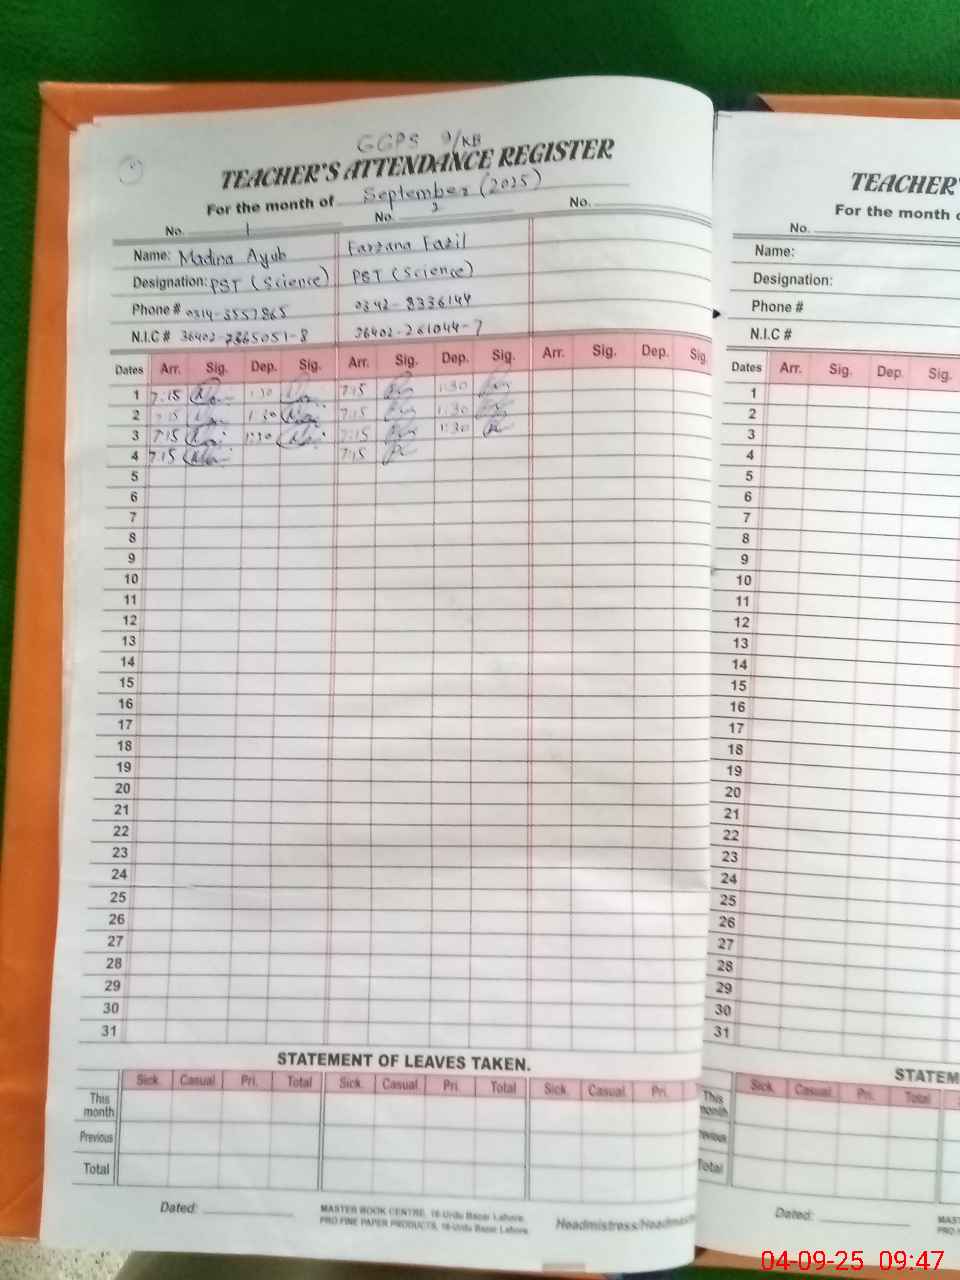 GGPS 9/KB
TEACHER'S ATTENDANCE REGISTER
For the month of September (2025)
No. 1 No. 2 No.
Name: Madina Ayub Farzana Fazil
Designation: PST (Science) PST (Science)
Phone # 0314-3557865 0342-8336144
N.I.C # 36402-7865051-8 36402-261044-7
Dates Arr. Sig. Dep. Sig. Arr. Sig. Dep. Sig. Arr. Sig. Dep. Sig.
1 7:15 1:30 7:15 1:30
2 7:15 1:30 7:15 1:30
3 7:15 1:30 7:15 1:30
4 7:15 7:15
5
6
7
8
9
10
11
12
13
14
15
16
17
18
19
20
21
22
23
24
25
26
27
28
29
30
31
STATEMENT OF LEAVES TAKEN.
Sick. Casual Pri. Total Sick. Casual. Pri. Total Sick. Casual. Pri.
This month
Previous
Total
Dated:
MASTER BOOK CENTRE, 16-Urdu Bazar Lahore.
PRO FINE PAPER PRODUCTS, 16-Urdu Bazar Lahore.
Headmistress/Headmas
TEACHER'
For the month o
No.
Name:
Designation:
Phone #
N.I.C #
Dates Arr. Sig. Dep. Sig.
1
2
3
4
5
6
7
8
9
10
11
12
13
14
15
16
17
18
19
20
21
22
23
24
25
26
27
28
29
30
31
STATEM
Sick. Casual. Pri. Total
This month
Previous
Total
Dated:
MAS
PRO
04-09-25 09:47